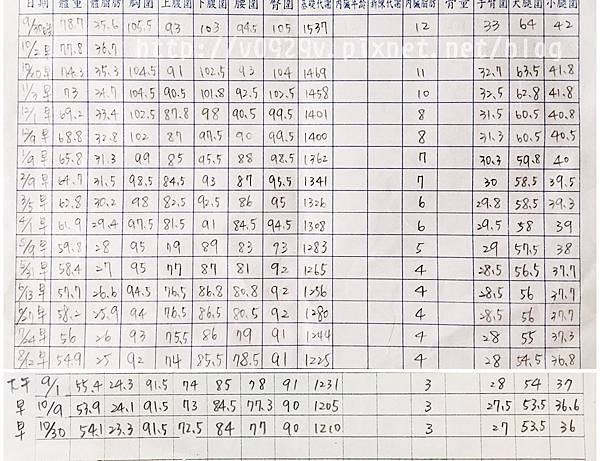 日期 體重 體脂肪 胸圍 上腹圍 下腹圍 腰圍 臀圍 基礎代謝 內臟年齡 新陳代謝 內臟脂肪 骨量 手臂圍 大腿圍 小腿圍
78.7 35.6 105.5 93 103 94.5 105 1537 12 33 64 42
10/2早 77.8 36.7
http://v0929v.pixnet.net/blog
10/30早 74.3 35.3 104.5 91 102.5 93 104 1469 11 32.7 63.5 41.8
11/3早 73 34.7 104.5 90.5 101.8 92.5 102.5 1458 10 32.5 62.8 41.8
12/1早 69.2 33.4 102.5 87.8 98 90.5 99.5 1401 8 31.5 60.5 40.8
12/9早 68.8 32.8 102 87 97.5 90 99.5 1400 8 31.3 60.5 40.5
1/9早 65.8 31.3 99 85 95.5 88 98.5 1362 7 30.3 59.8 40
2/9早 64.7 31.5 98.5 84.5 93 87 95.5 1341 7 30 58.5 39.5
3/5早 62.8 30.2 98 82.5 92.5 86 95 1326 6 29.8 58.5 39.3
4/1早 61.9 29.4 97.5 81.5 91 84.5 94.5 1308 6 29.5 58 39
5/9早 59.8 28 95 79 89 83 93 1283 5 29 57.5 38
5/31早 58.4 27 95 77 87 81 92 1265 4 28.5 56.5 37.7
6/13早 57.7 26.6 94.5 76.5 86.8 80.8 92 1256 4 28.5 56 37.7
6/27早 58.2 25.9 94 76.5 86.5 80.5 92 1280 4 28.5 56 37.7
7/24早 56 26 93 75.5 86 79 91 1244 4 28 55 37.3
8/12早 54.9 25 92 74 85.5 78.5 91 1225 4 28 54.5 36.8
下午 9/1 55.4 24.3 91.5 74 85 78 91 1231 3 28 54 37
早 10/9 53.9 24.1 91.5 73 84.5 77.3 90 1205 3 27.5 53.5 36.6
早 10/30 54.1 23.3 91.5 72.5 84 77 90 1210 3 27 53.5 36